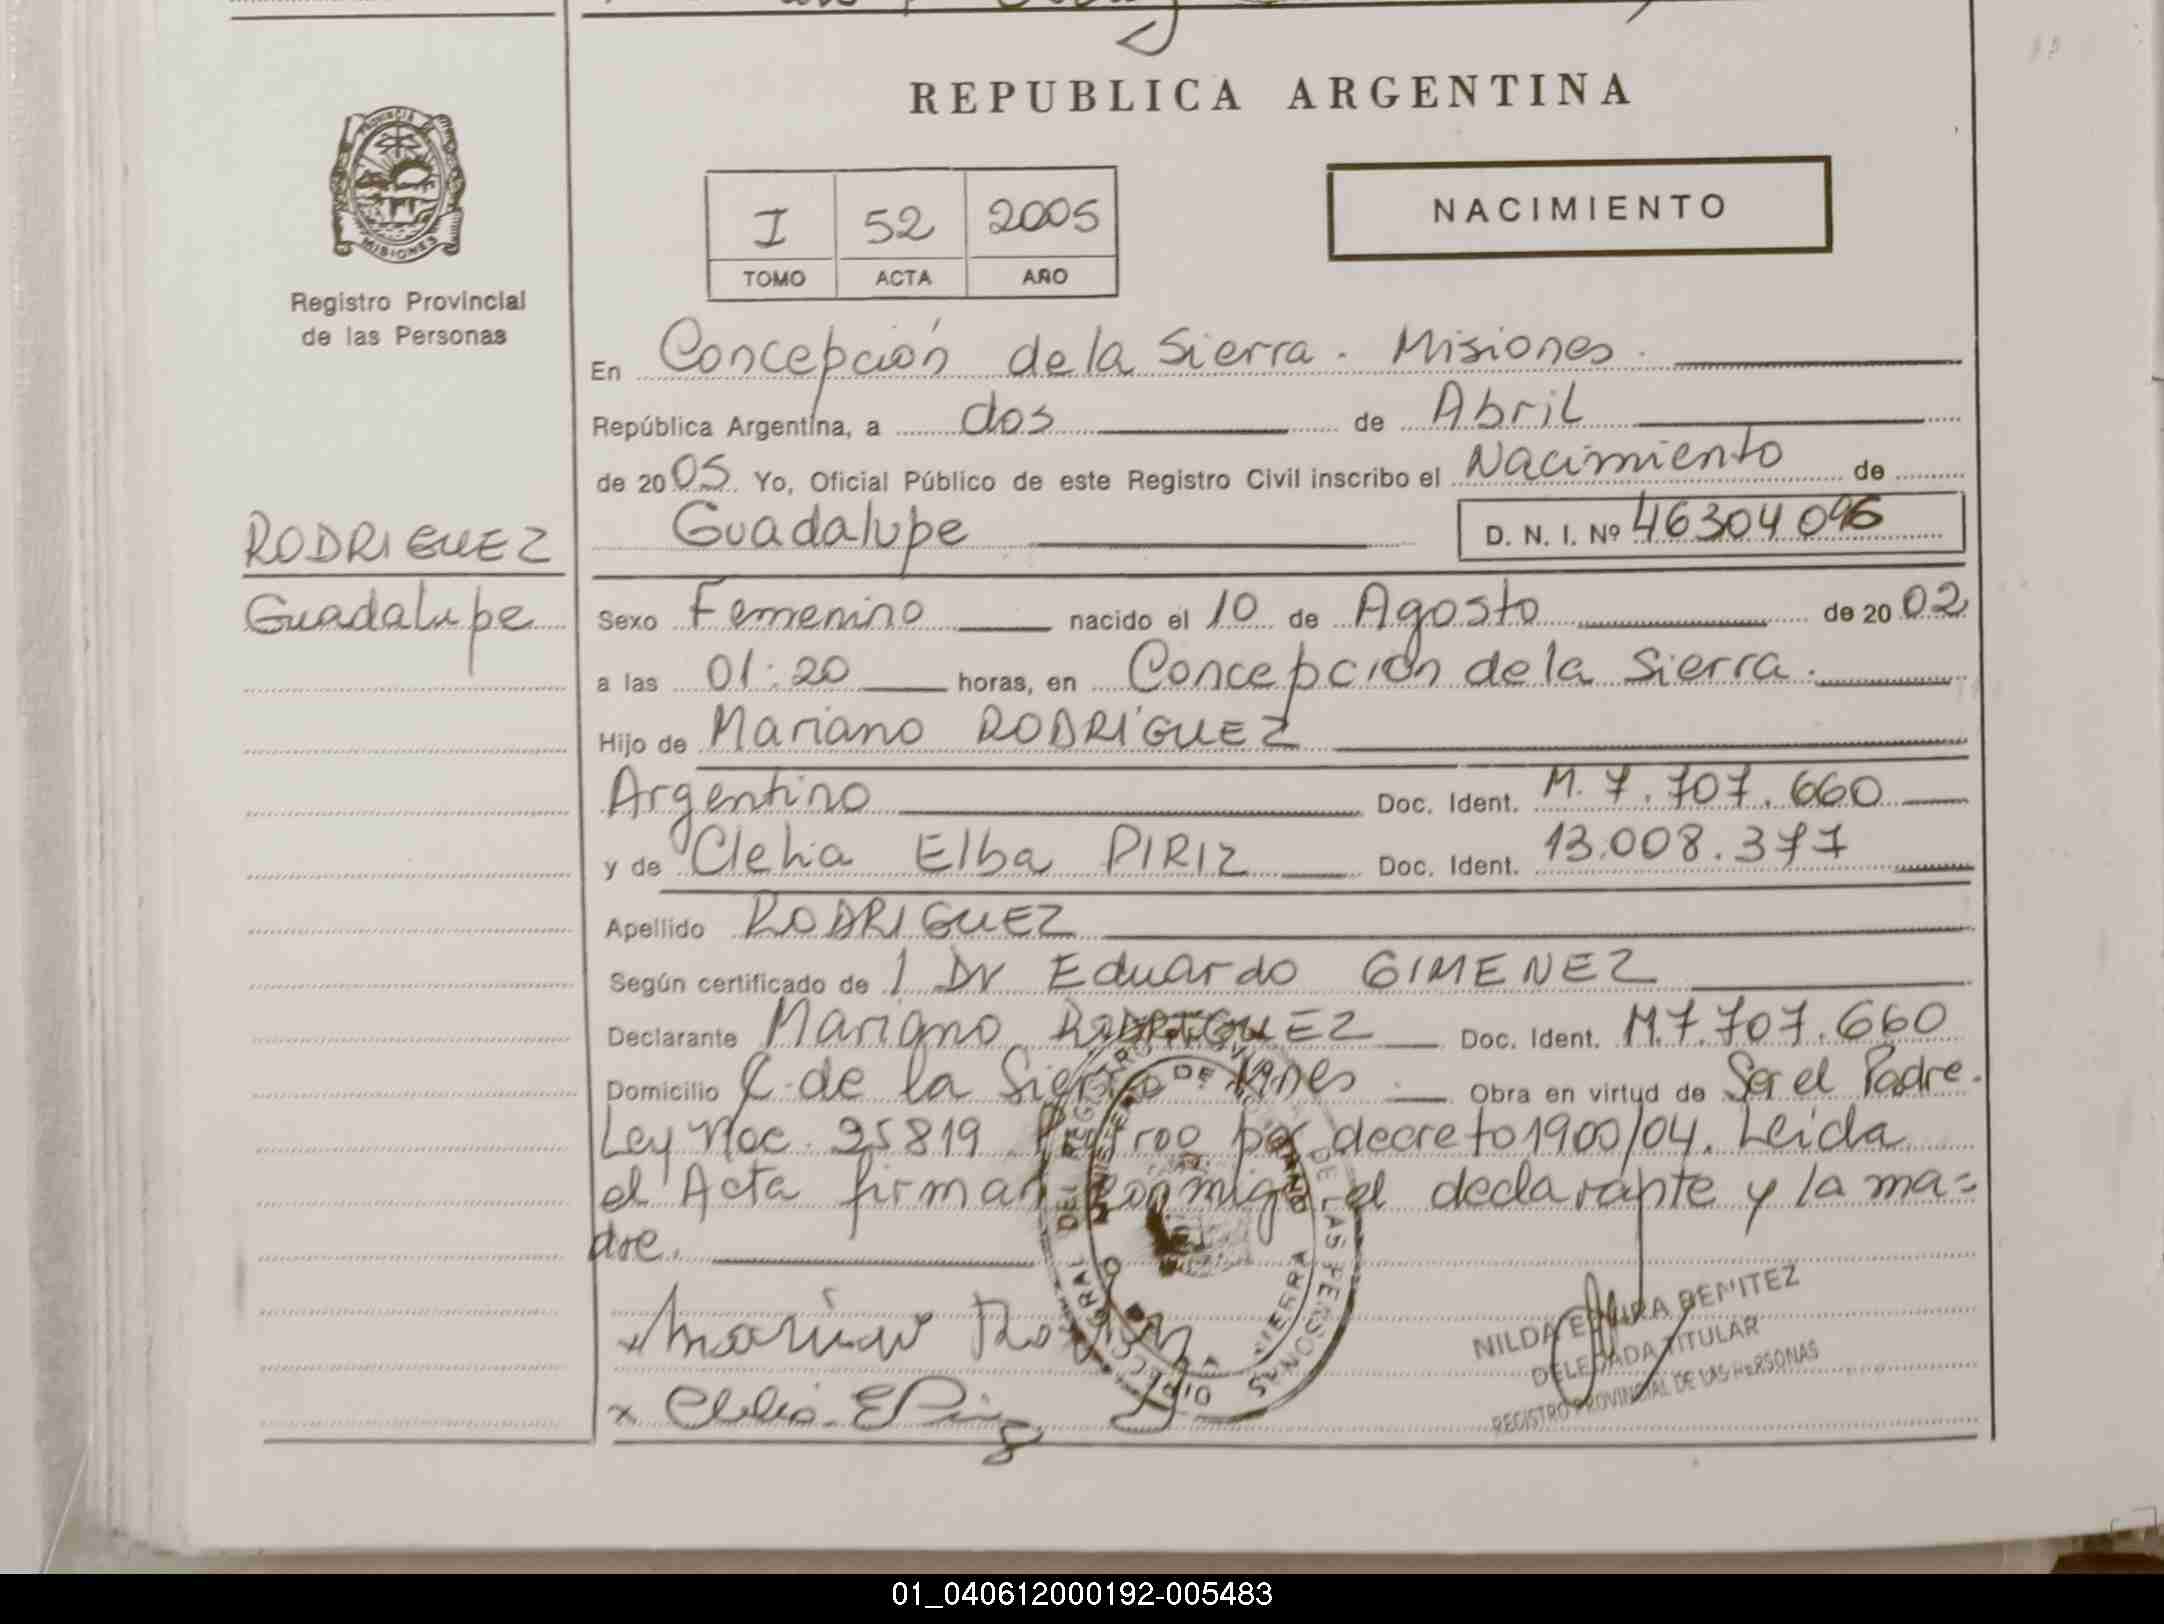 REPUBLICA ARGENTINA
PROVINCIA
MISIONES
Registro Provincial
de las Personas
I 52 2005
TOMO ACTA AÑO
NACIMIENTO
En Concepción de la Sierra. Misiones.
República Argentina, a dos de Abril
de 2005 Yo, Oficial Público de este Registro Civil inscribo el Nacimiento de
RODRIGUEZ
Guadalupe D. N. I. Nº 46304096
Guadalupe
Sexo Femenino nacido el 10 de Agosto de 2002
a las 01:20 horas, en Concepción de la Sierra.
Hijo de Mariano RODRÍGUEZ
Argentino Doc. Ident. M. 7.707.660
y de Clelia Elba PIRIZ Doc. Ident. 13.008.377
Apellido RODRIGUEZ
Según certificado de 1 Dr Eduardo GIMENEZ
Declarante Mariano RODRIGUEZ Doc. Ident. M.7.707.660
Domicilio C. de la Sierra Mnes Obra en virtud de Ser el Padre.
Ley Nac. 25819 por decreto 1900/04. Leida
el Acta firman conmigo el declarante y la ma=
dre.
x Mariano
x Clelia E Piriz
DIRECCION GENERAL DEL REGISTRO DE LAS PERSONAS
MINISTERIO DE GOBIERNO
SIERRA
NILDA ELVIRA BENITEZ
DELEGADA TITULAR
REGISTRO PROVINCIAL DE LAS PERSONAS
01_040612000192-005483